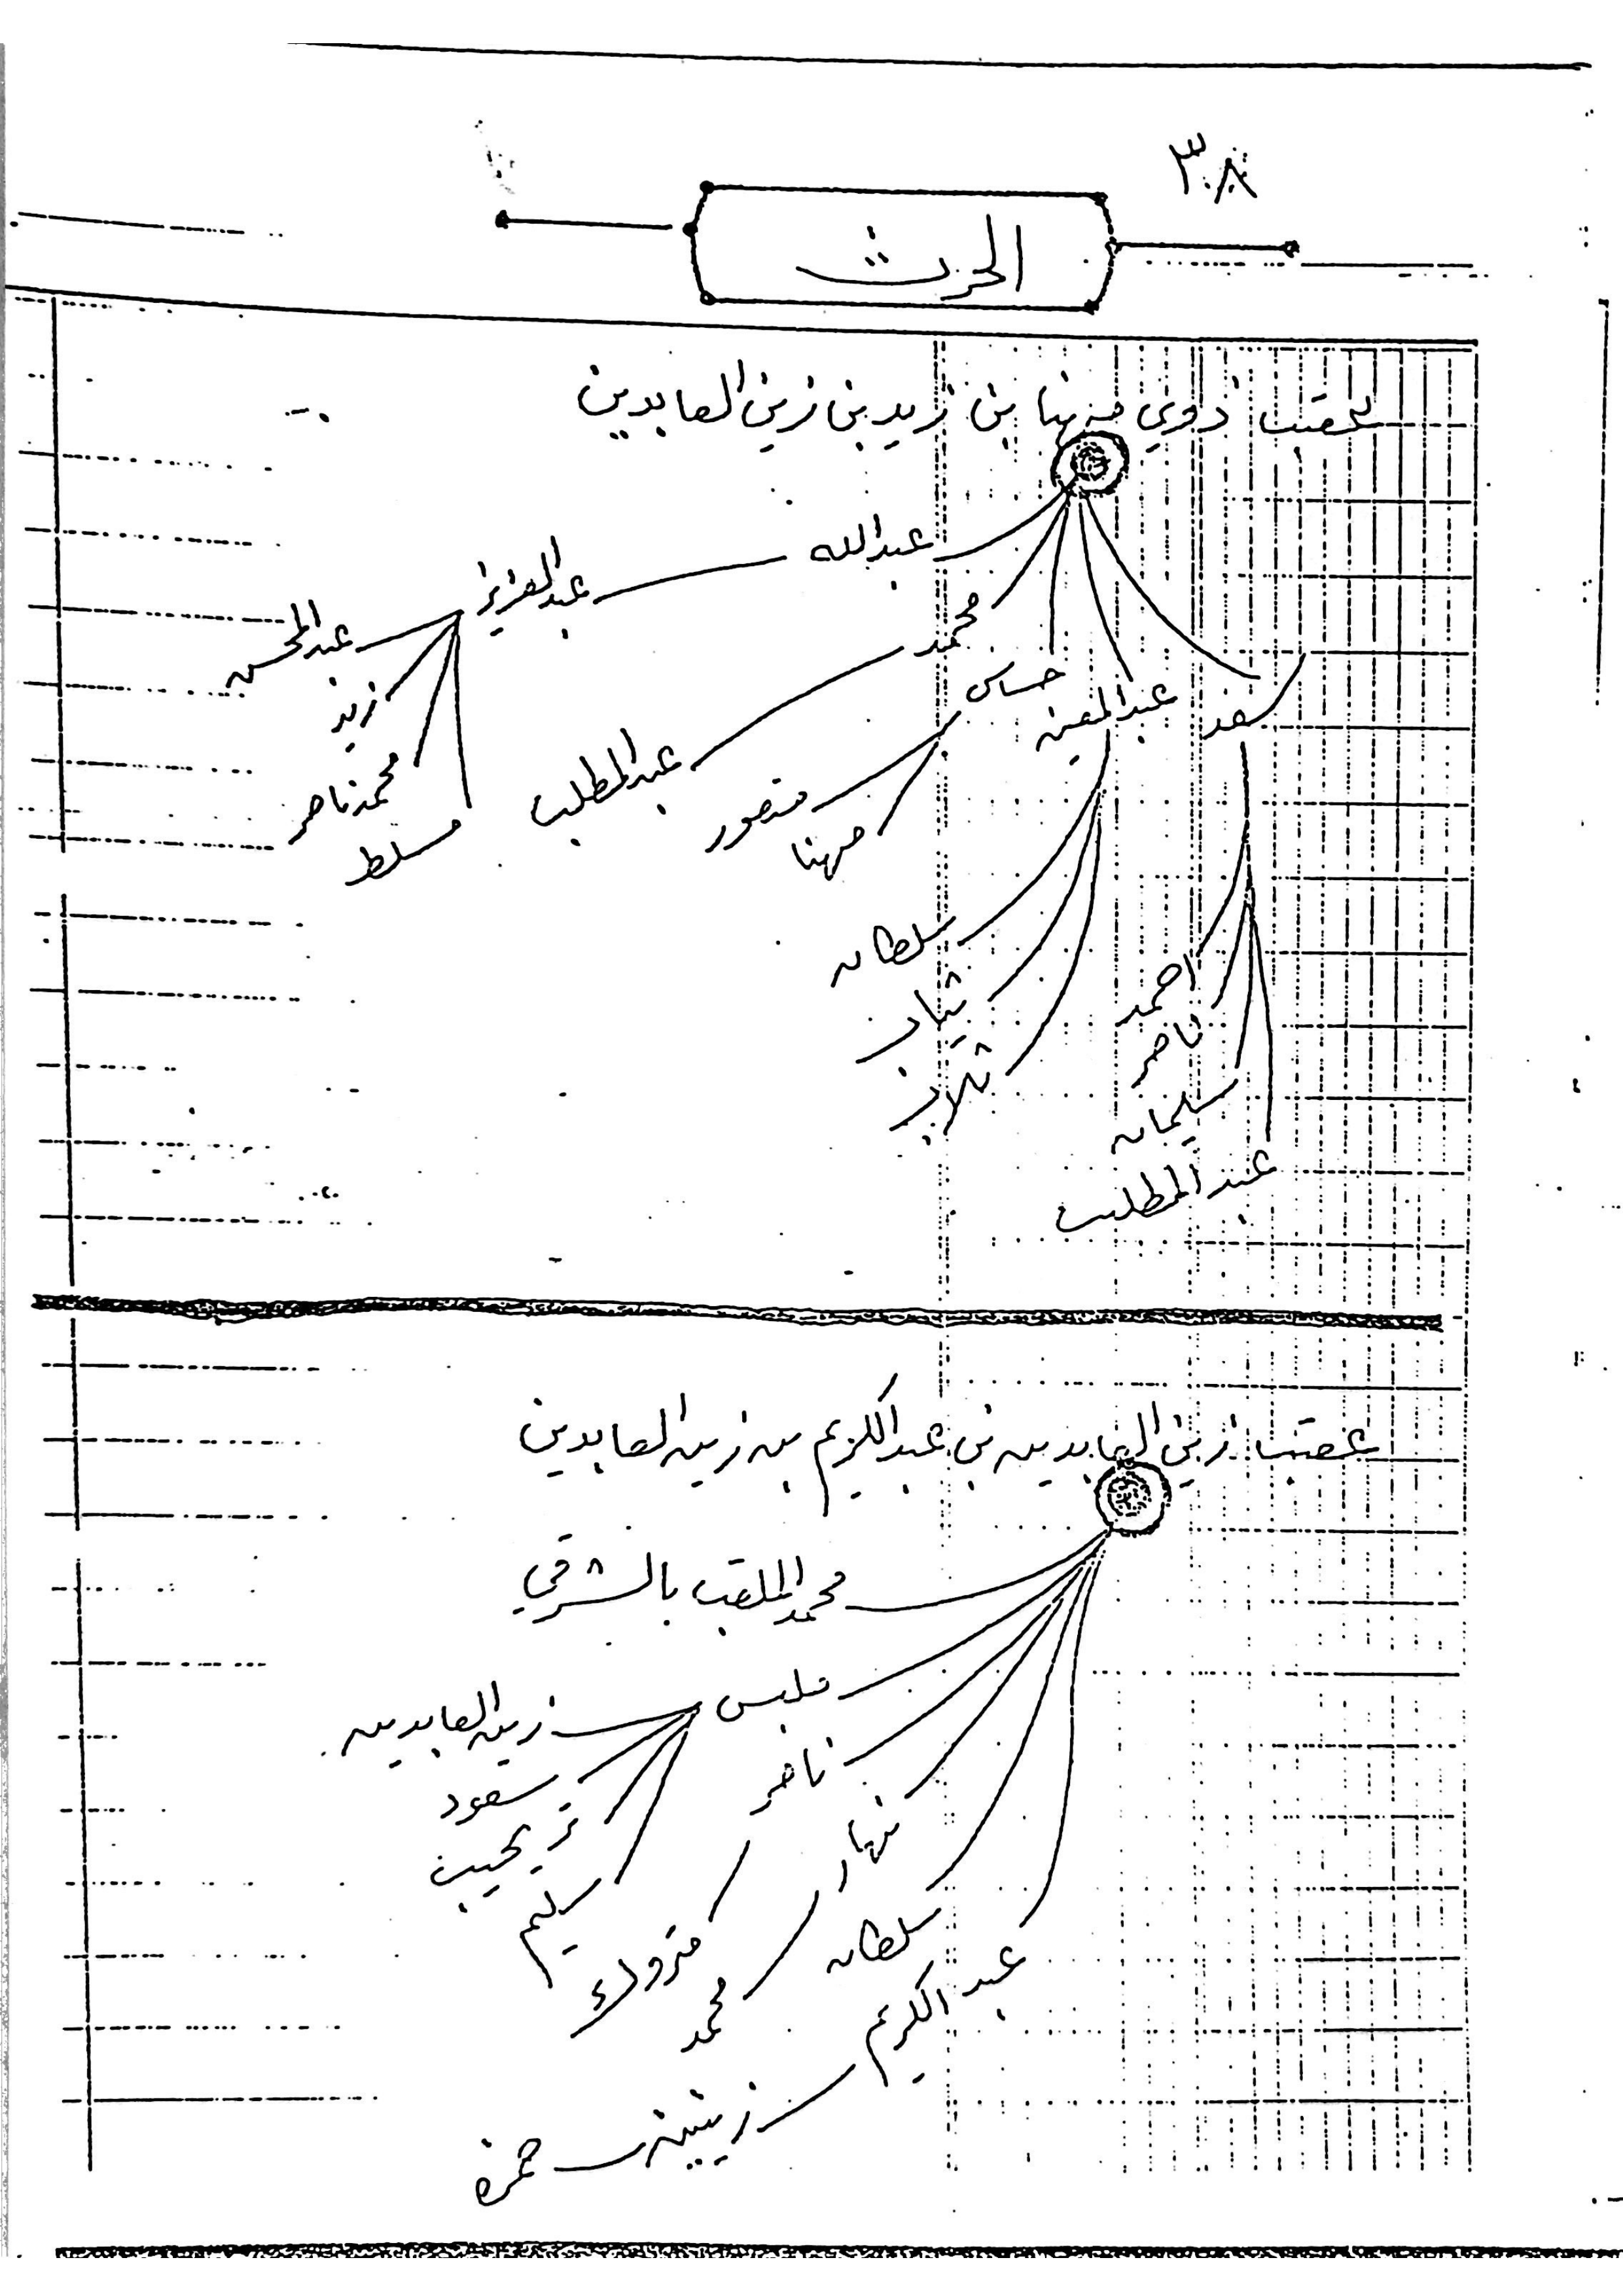 ٣٠٨
الحرث
عقب ذوي مهنا بن زيد بن زين العابدين
عبدالله
عبدالعزيز
عبدالمحسن
زيد
محمد ناصر
مسلط
محمد
عبدالمطلب
حساس
منصور
مهنا
عبدالمعين
سلطان
ثياب
ثلاب
سعد
احمد
ناصر
سليمان
عبدالمطلب
عقب زين العابدين بن عبدالكريم بن زين العابدين
محمد الملقب بالشرقي
ملبس
زين العابدين
سعود
تريحيب
سليم
ناصر
متروك
نهار
محمد
سلطان
عبدالكريم
زيني
حمزه